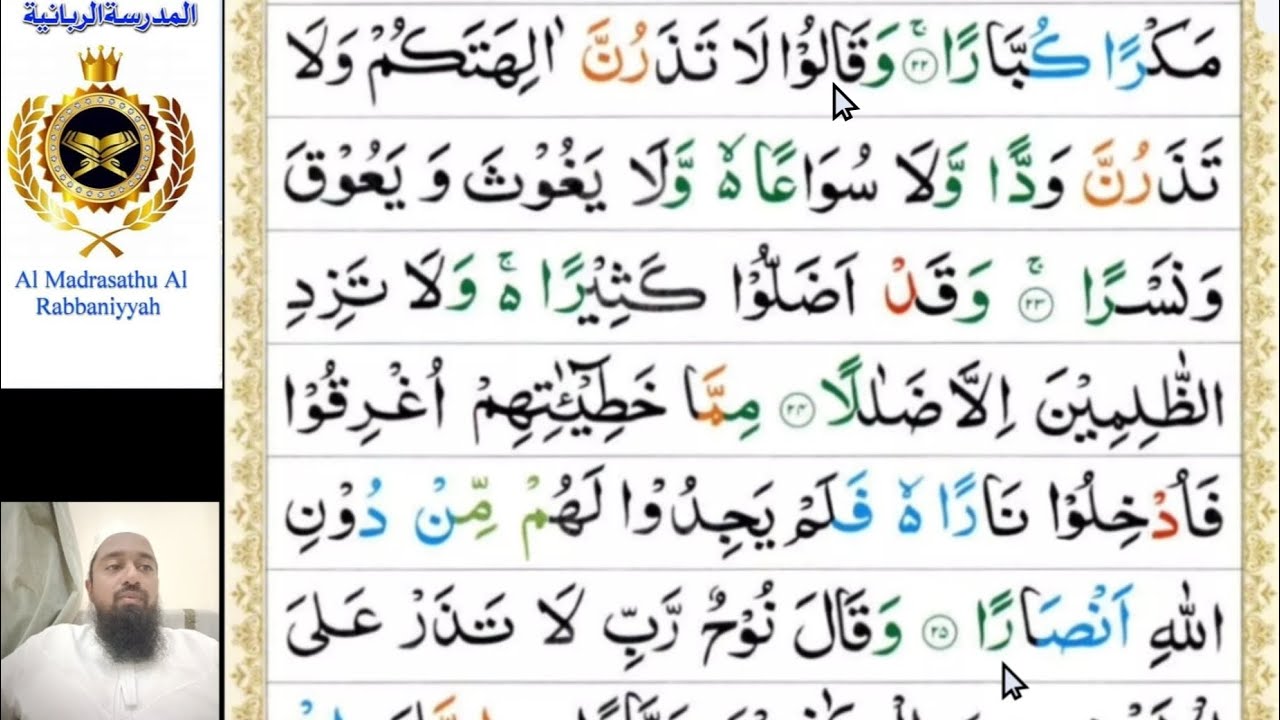 المدرسة الربانية
Al Madrasathu Al
Rabbaniyyah
مَكْرًا كُبَّارًا ۚ ﴿۲۲﴾ وَقَالُوْا لَا تَذَرُنَّ اٰلِهَتَكُمْ وَلَا
تَذَرُنَّ وَدًّا وَّلَا سُوَاعًا ۙ وَّلَا يَغُوْثَ وَ يَعُوْقَ
وَنَسْرًا ۚ ﴿۲۳﴾ وَقَدْ اَضَلُّوْا كَثِيْرًا ۚ وَلَا تَزِدِ
الظّٰلِمِيْنَ اِلَّا ضَلٰلًا ﴿۲۴﴾ مِمَّا خَطِيْٓـٰٔتِهِمْ اُغْرِقُوْا
فَاُدْخِلُوْا نَارًا ۙ فَلَمْ يَجِدُوْا لَهُمْ مِّنْ دُوْنِ
اللّٰهِ اَنْصَارًا ﴿۲۵﴾ وَقَالَ نُوْحٌ رَّبِّ لَا تَذَرْ عَلَى